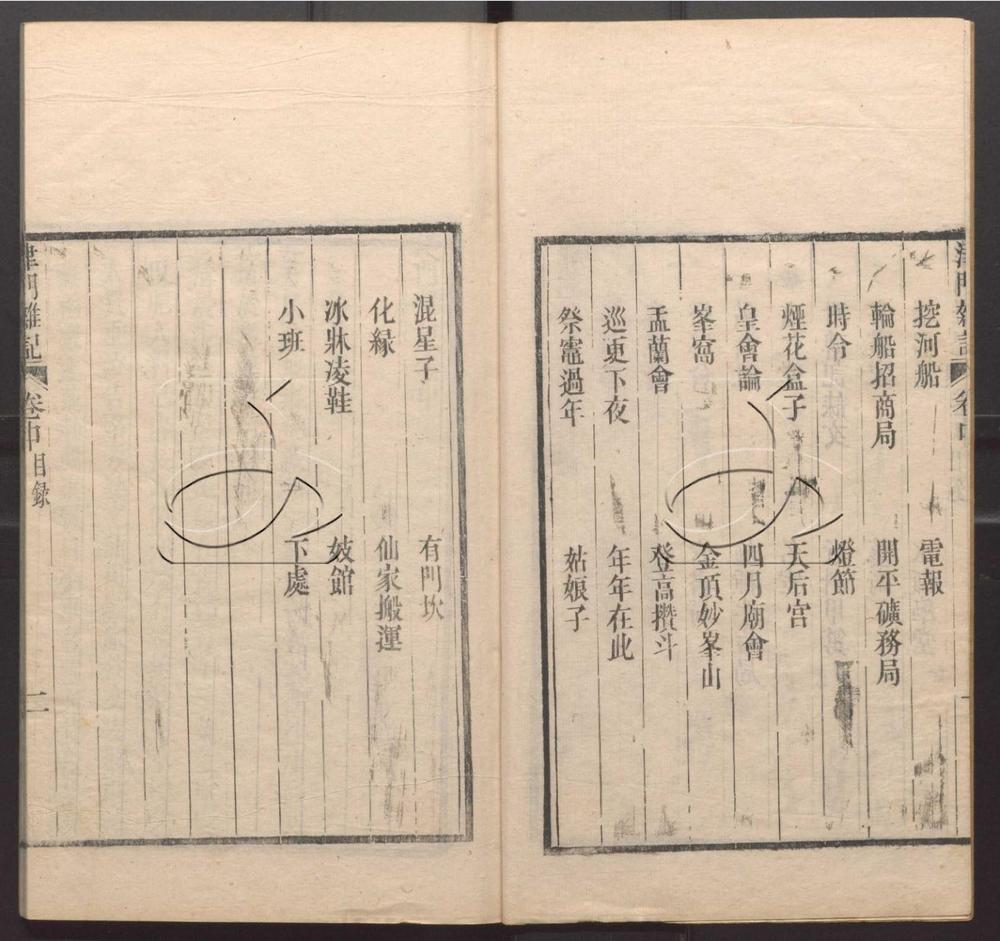 津門雜記 卷中
挖河船 電報
輪船招商局 開平礦務局
時令 燈節
煙花盒子 天后宮
皇會論 四月廟會
峯窩 金頂妙峯山
盂蘭會 登高攢斗
巡更下夜 年年在此
祭竈過年 姑娘子
混星子 有門坎
化緣 仙家搬運
冰牀凌鞋 妓館
小班 下處
津門雜記 卷中目録 二